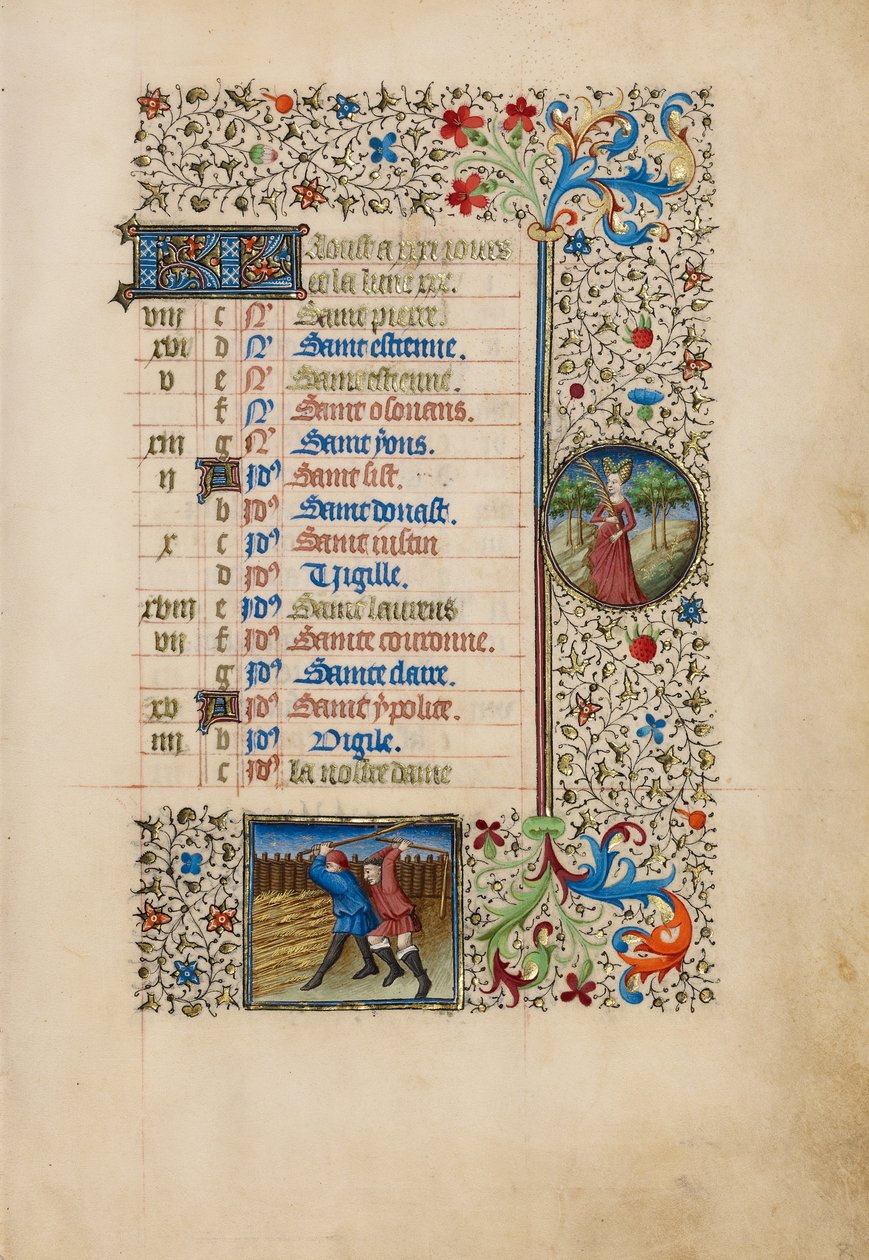 KL Aoust a xxxi iours
et la lune xxx.
viii c N Saint pierre.
xvi d N Saint estienne.
v e N Saint estienne.
f N Saint osouans.
xiii g N Saint yons.
ii A Id9 Saint sist.
b Id9 Saint donast.
x c Id9 Saint iustin
d Id9 Vigille.
xviii e Id9 Saint laurens
vii f Id9 Sainte couronne.
g Id9 Sainte claire.
xv A Id9 Saint ypolite.
iiii b Id9 Vigile.
c Id9 la nostre dame